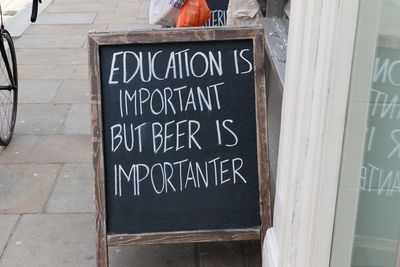 EDUCATION IS
IMPORTANT
BUT BEER IS
IMPORTANTER